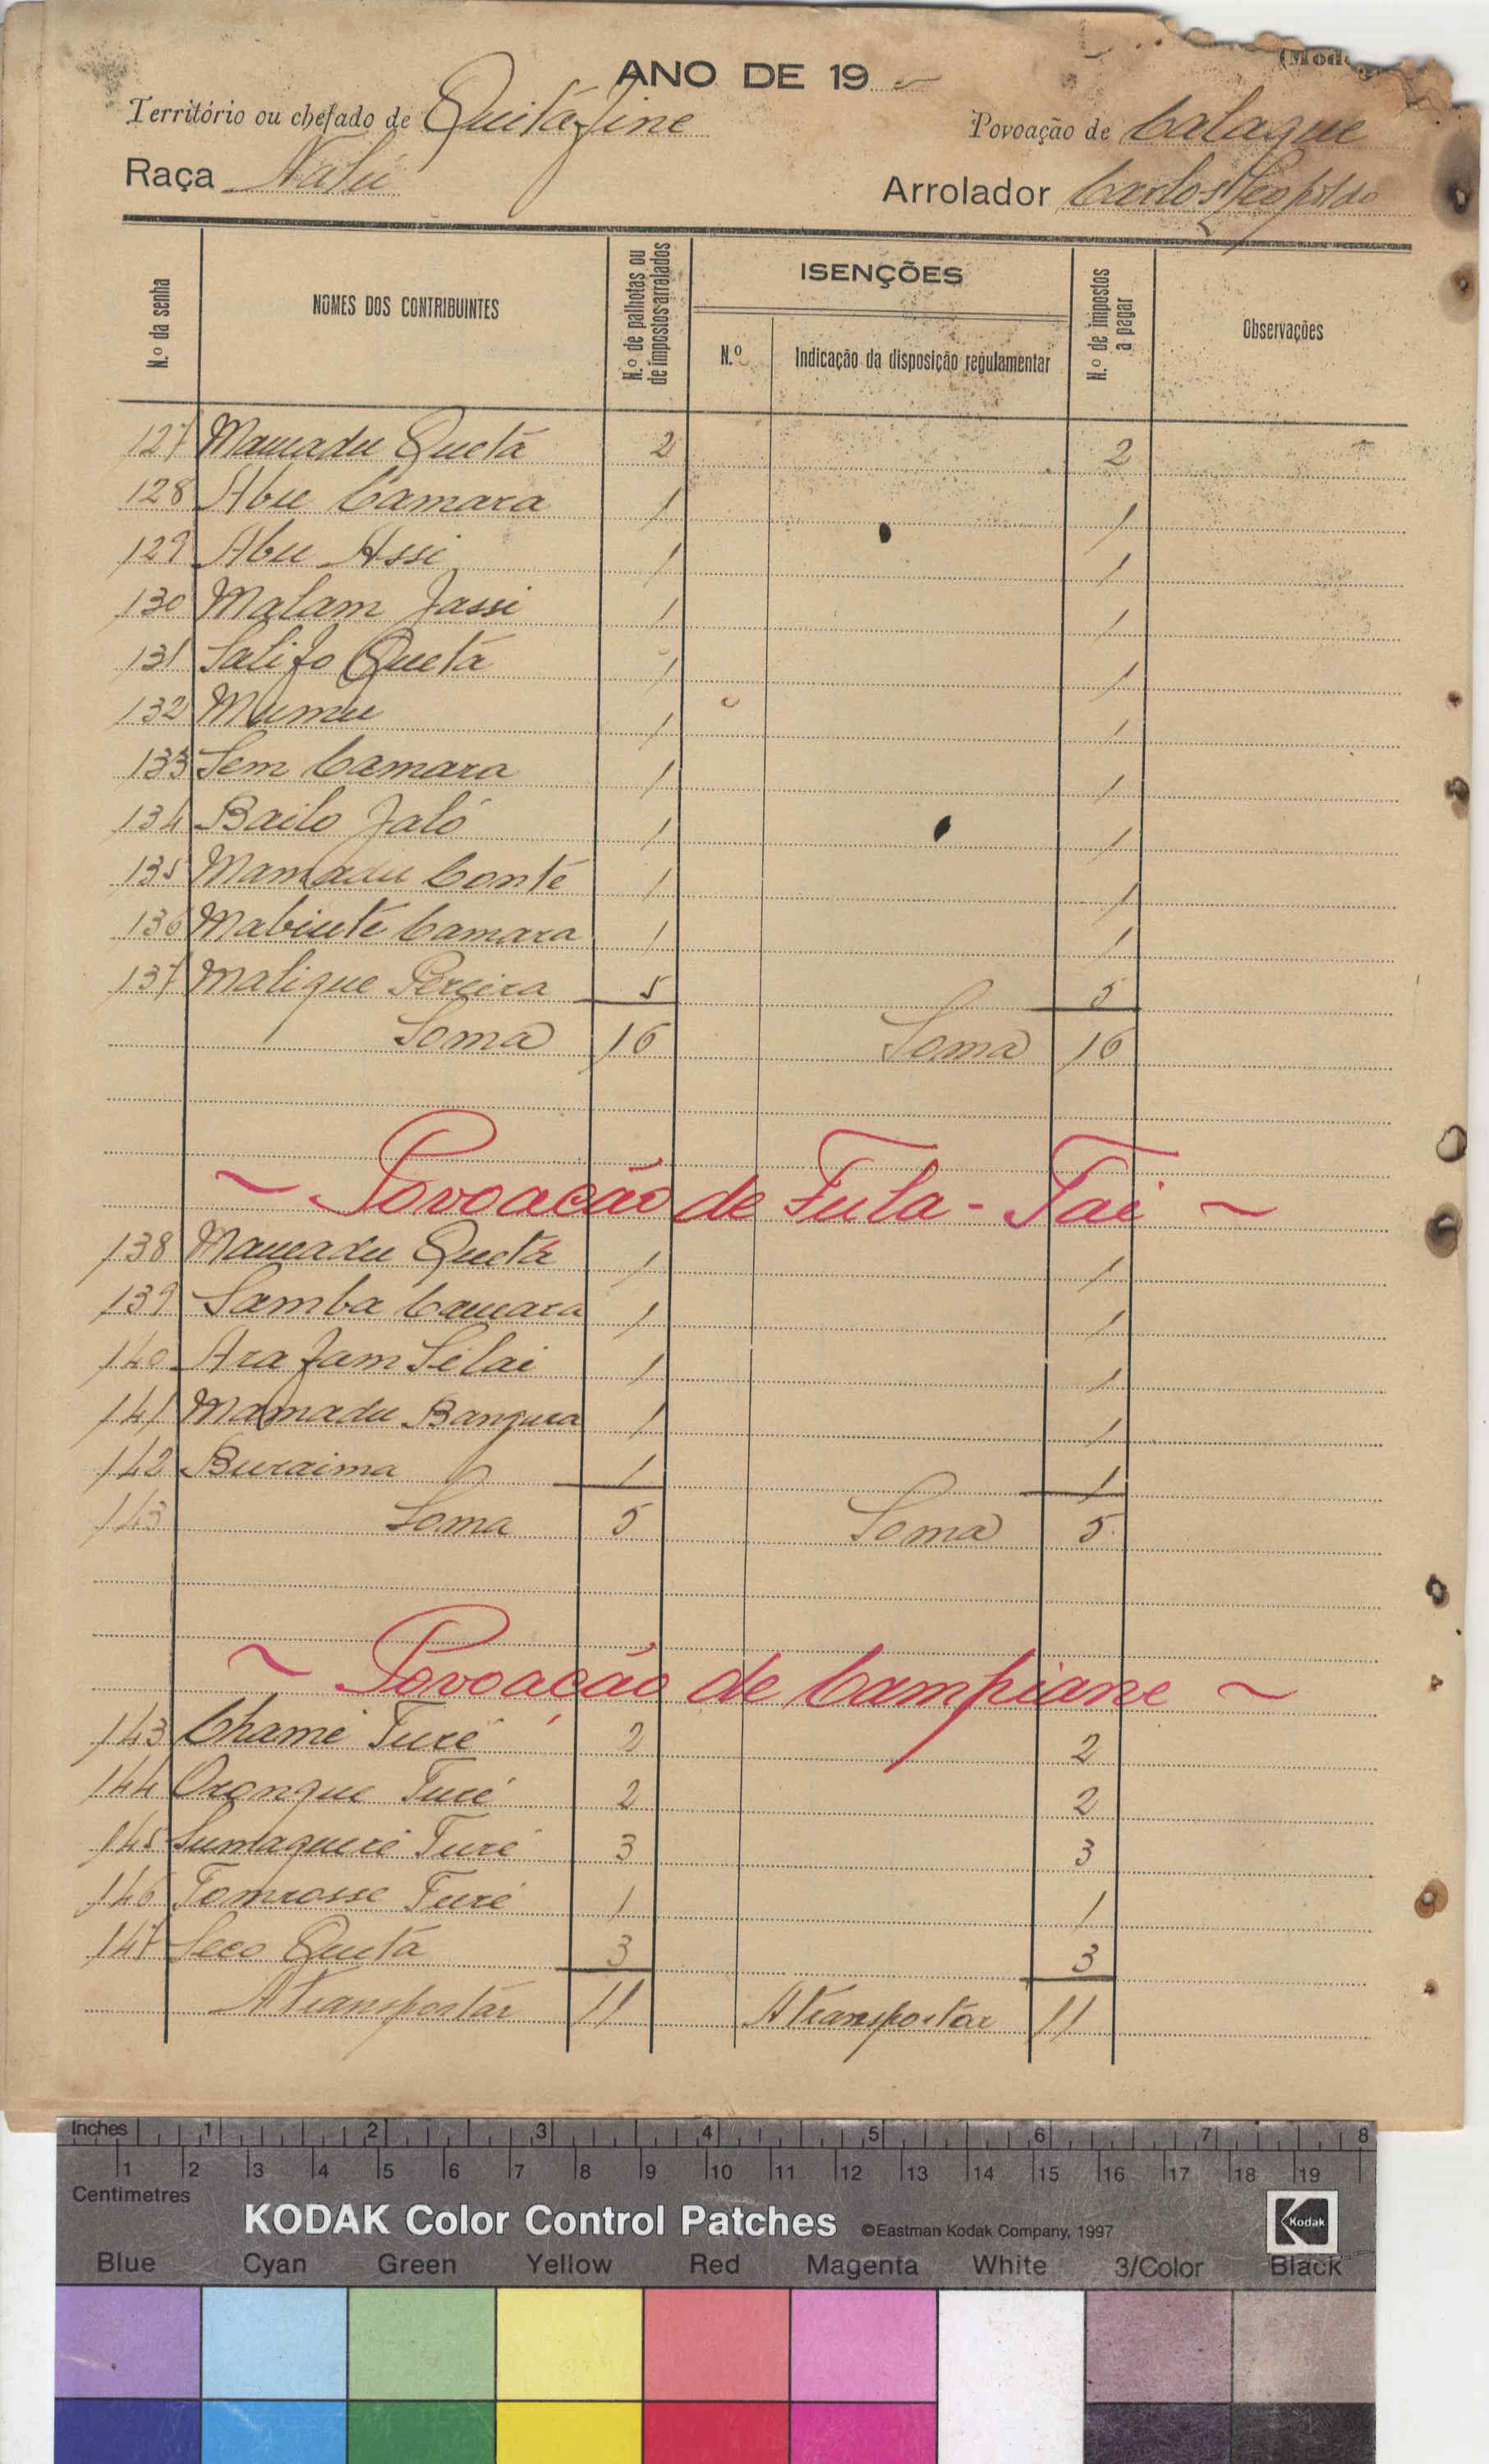 (Mod
ANO DE 19
Território ou chefado de Quitafine Povoação de Calaque
Raça Nalú Arrolador Carlos Leopoldo
N.º da senha NOMES DOS CONTRIBUINTES N.º de palhotas ou de impostos arrolados ISENÇÕES N.º Indicação da disposição regulamentar N.º de impostos a pagar Observações
127 Mamadu Quetá 2 2
128 Abu Camara 1 1
129 Abu Assi 1 1
130 Malam Jassi 1 1
131 Salifo Quetá 1 1
132 Mumu 1 1
133 Sem Camara 1 1
134 Bailo Jaló 1 1
135 Mamadu Conté 1 1
136 Mabinte Camara 1 1
137 Malique Pereira 5 5
Soma 16 Soma 16
~ Povoação de Fula - Tai ~
138 Mamadu Quetá 1 1
139 Samba Camara 1 1
140 Ara Jam Silai 1 1
141 Mamadu Bangura 1 1
142 Buraima 1 1
143 Soma 5 Soma 5
~ Povoação de Campiane ~
143 Chame Turé 2 2
144 Oronque Turé 2 2
145 Sumaqueré Turé 3 3
146 Tomrosse Turé 1 1
147 Seco Quetá 3 3
A transportar 11 A transportar 11
Inches 1 2 3 4 5 6 7 8
1 2 3 4 5 6 7 8 9 10 11 12 13 14 15 16 17 18 19
Centimetres
KODAK Color Control Patches ©Eastman Kodak Company, 1997 Kodak
Blue Cyan Green Yellow Red Magenta White 3/Color Black